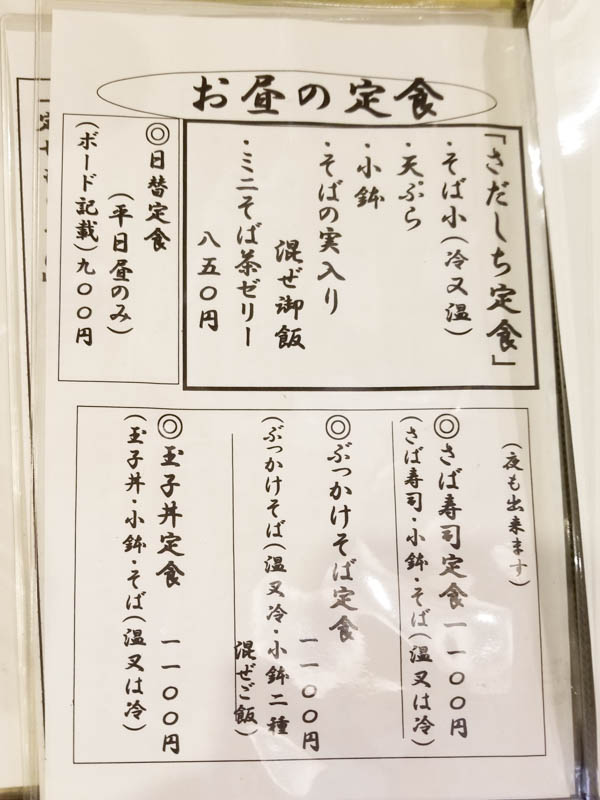 お昼の定食
「さだしち定食」
・そば小(冷又温)
・天ぷら
・小鉢
・そばの実入り
混ぜ御飯
・ミニそば茶ゼリー
八五〇円
◎日替定食
(平日昼のみ)
(ボード記載)九〇〇円
(夜も出来ます)
◎さば寿司定食 一一〇〇円
(さば寿司・小鉢・そば(温又は冷)
◎ぶっかけそば定食 一一〇〇円
(ぶっかけそば(温又冷・小鉢二種
混ぜご飯)
◎玉子丼定食 一一〇〇円
(玉子丼・小鉢・そば(温又は冷)